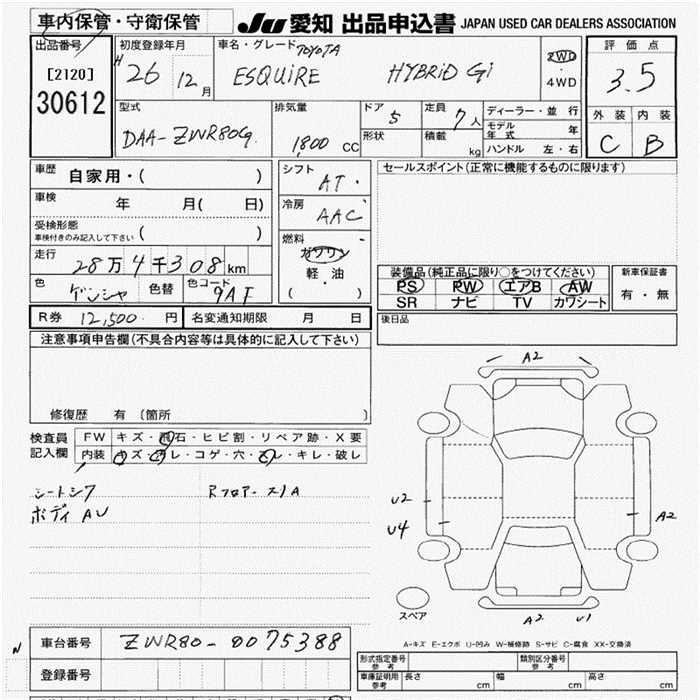 車内保管・守衛保管
JU 愛知 出品申込書 JAPAN USED CAR DEALERS ASSOCIATION
出品番号
[2120]
30612
初度登録年月
H 26 12月
車名・グレード TOYOTA
ESQUIRE HYBRID Gi
2WD
・
4WD
評価点
3.5
外装 内装
C B
型式
DAA-ZWR80G
排気量
1,800 cc
ドア 5
形状
定員 7人
積載 kg
ディーラー・並行
モデル年式 年
ハンドル 左・右
車歴 自家用・( )
車検 年 月( 日)
受検形態
車検付きのみ記入して下さい ( )
走行 28万4千308km
色 ゲンシャ 色替 色コード 9AF
シフト
AT
冷房
AAC
燃料
ガソリン
軽・油
( )
セールスポイント(正常に機能するものに限ります)
装備品(純正品に限り○をつけてください)
PS PW エアB AW
SR ナビ TV カワシート
新車保証書
有・無
R券 12,500 円 名変通知期限 月 日
後日品
注意事項申告欄(不具合内容等は具体的に記入して下さい)
修復歴 有 〔箇所 〕
検査員
記入欄
FW キズ・飛石・ヒビ割・リペア跡・X要
内装 キズ・コゲ・穴・キレ・破レ
ボディ AU
A2
U2
U4
A2
スペア
A2 U1
A-キズ E-エクボ U-凹み W-補修跡 S-サビ C-腐食 XX-交換済
N
車台番号 ZWR80-0075388
登録番号
形式指定番号
参考
類別区分番号
参考
車庫証明用
参考
長さ cm 幅 cm 高さ cm